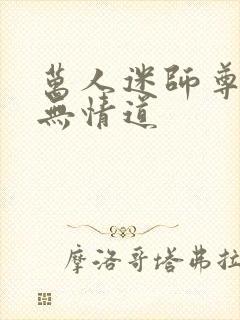 萬人迷師尊
無情道
摩洛哥塔弗拉